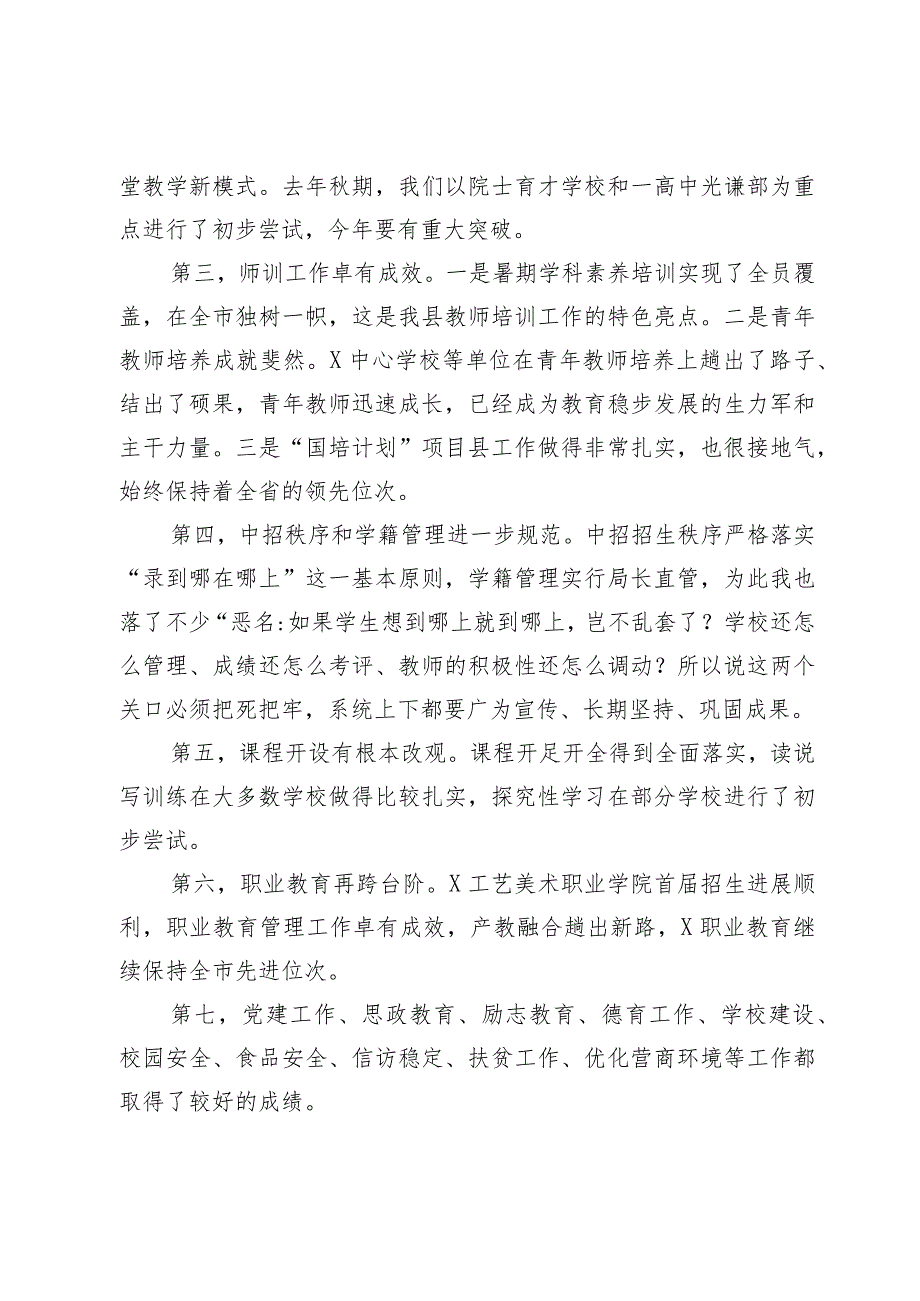 堂教学新模式。去年秋期，我们以院士育才学校和一高中光谦部为重
点进行了初步尝试，今年要有重大突破。
第三，师训工作卓有成效。一是暑期学科素养培训实现了全员覆
盖，在全市独树一帜，这是我县教师培训工作的特色亮点。二是青年
教师培养成就斐然。X 中心学校等单位在青年教师培养上趟出了路子、
结出了硕果，青年教师迅速成长，已经成为教育稳步发展的生力军和
主干力量。三是“国培计划”项目县工作做得非常扎实，也很接地气，
始终保持着全省的领先位次。
第四，中招秩序和学籍管理进一步规范。中招招生秩序严格落实
“录到哪在哪上”这一基本原则，学籍管理实行局长直管，为此我也
落了不少“恶名:如果学生想到哪上就到哪上，岂不乱套了？学校还怎
么管理、成绩还怎么考评、教师的积极性还怎么调动？所以说这两个
关口必须把死把牢，系统上下都要广为宣传、长期坚持、巩固成果。
第五，课程开设有根本改观。课程开足开全得到全面落实，读说
写训练在大多数学校做得比较扎实，探究性学习在部分学校进行了初
步尝试。
第六，职业教育再跨台阶。X 工艺美术职业学院首届招生进展顺
利，职业教育管理工作卓有成效，产教融合趟出新路，X 职业教育继
续保持全市先进位次。
第七，党建工作、思政教育、励志教育、德育工作、学校建设、
校园安全、食品安全、信访稳定、扶贫工作、优化营商环境等工作都
取得了较好的成绩。